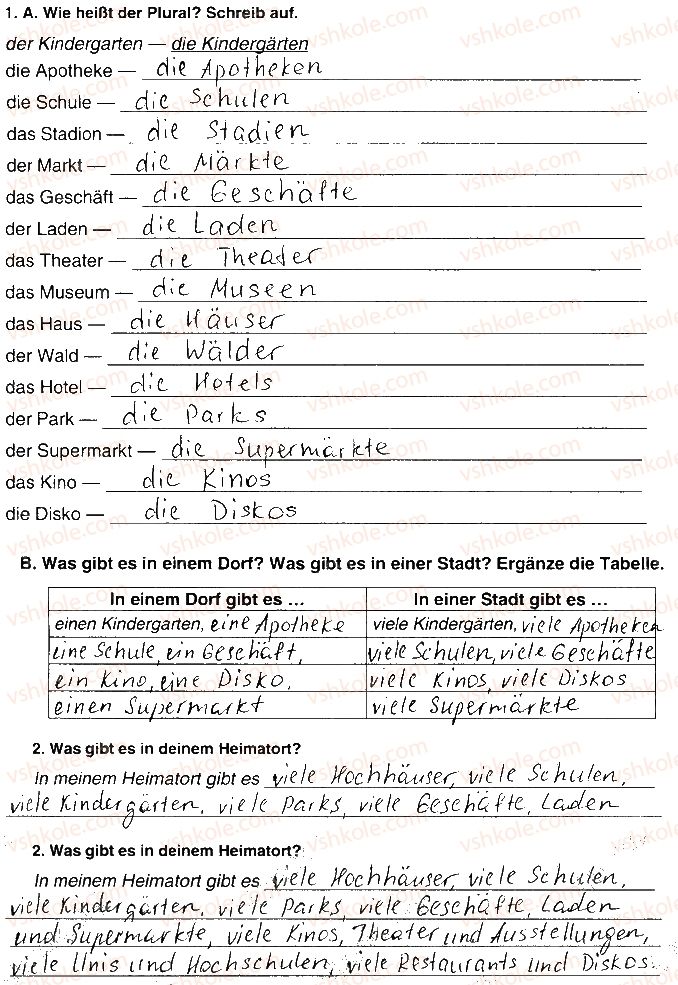 1. A. Wie heißt der Plural? Schreib auf.
der Kindergarten — die Kindergärten
die Apotheke — die Apotheken
die Schule — die Schulen
das Stadion — die Stadien
der Markt — die Märkte
das Geschäft — die Geschäfte
der Laden — die Laden
das Theater — die Theater
das Museum — die Museen
das Haus — die Häuser
der Wald — die Wälder
das Hotel — die Hotels
der Park — die Parks
der Supermarkt — die Supermärkte
das Kino — die Kinos
die Disko — die Diskos
B. Was gibt es in einem Dorf? Was gibt es in einer Stadt? Ergänze die Tabelle.
In einem Dorf gibt es ... In einer Stadt gibt es ...
einen Kindergarten, eine Apotheke viele Kindergärten, viele Apotheken
eine Schule, ein Geschäft, viele Schulen, viele Geschäfte
ein Kino, eine Disko, viele Kinos, viele Diskos
einen Supermarkt viele Supermärkte
2. Was gibt es in deinem Heimatort?
In meinem Heimatort gibt es viele Hochhäuser, viele Schulen,
viele Kindergärten, viele Parks, viele Geschäfte, Laden
2. Was gibt es in deinem Heimatort?
In meinem Heimatort gibt es viele Hochhäuser, viele Schulen,
viele Kindergärten, viele Parks, viele Geschäfte, Laden
und Supermarkte, viele Kinos, Theater und Ausstellungen,
viele Unis und Hochschulen, viele Restaurants und Diskos.